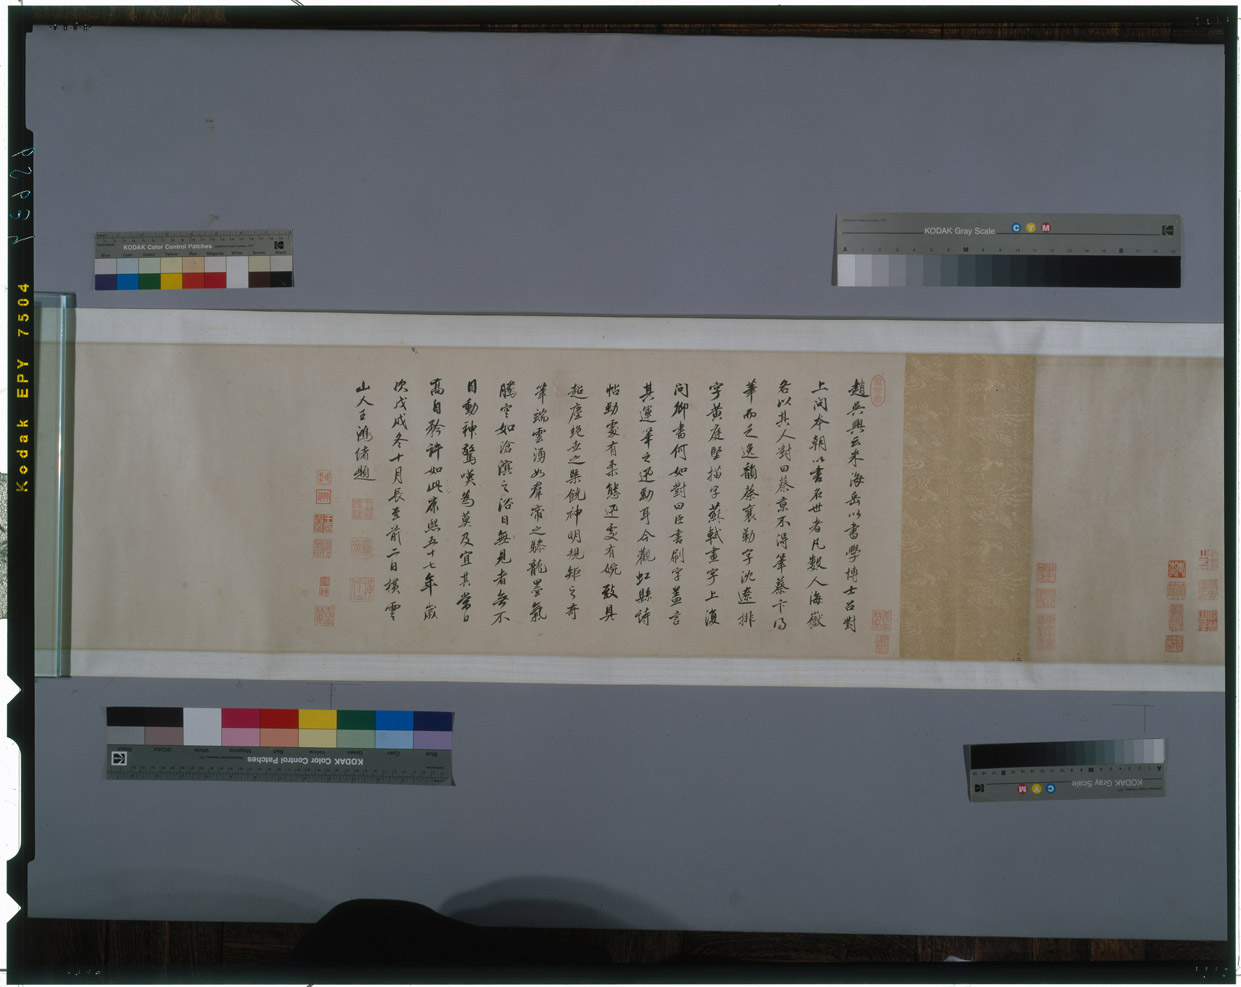 趙吳興云米海岳以書學博士召對
上問本朝以書名世者凡數人海嶽
各以其人對曰蔡京不得筆蔡卞得
筆而乏逸韻蔡襄勒字沈遼排
字黃庭堅描字蘇軾畫字上復
問卿書何如對曰臣書刷字蓋言
其運筆之迅勁耳今觀虹縣詩
帖勁處有柔態迅處有婉致具
超塵絕世之槩饒神明規矩之奇
筆端雲湧如群帝之驂龍墨氣
騰空如滄溟之浴日無見者無不
目動神驚嘆為莫及宜其當日
高自矜許如此康熙五十七年歲
次戊戌冬十月長至前二日橫雲
山人王鴻緒題
KODAK Color Control Patches
Blue Cyan Green Yellow Red Magenta White
KODAK Gray Scale
C Y M
A M B
Kodak EPY 7504
KODAK Color Control Patches
KODAK Gray Scale
C Y M
A M B